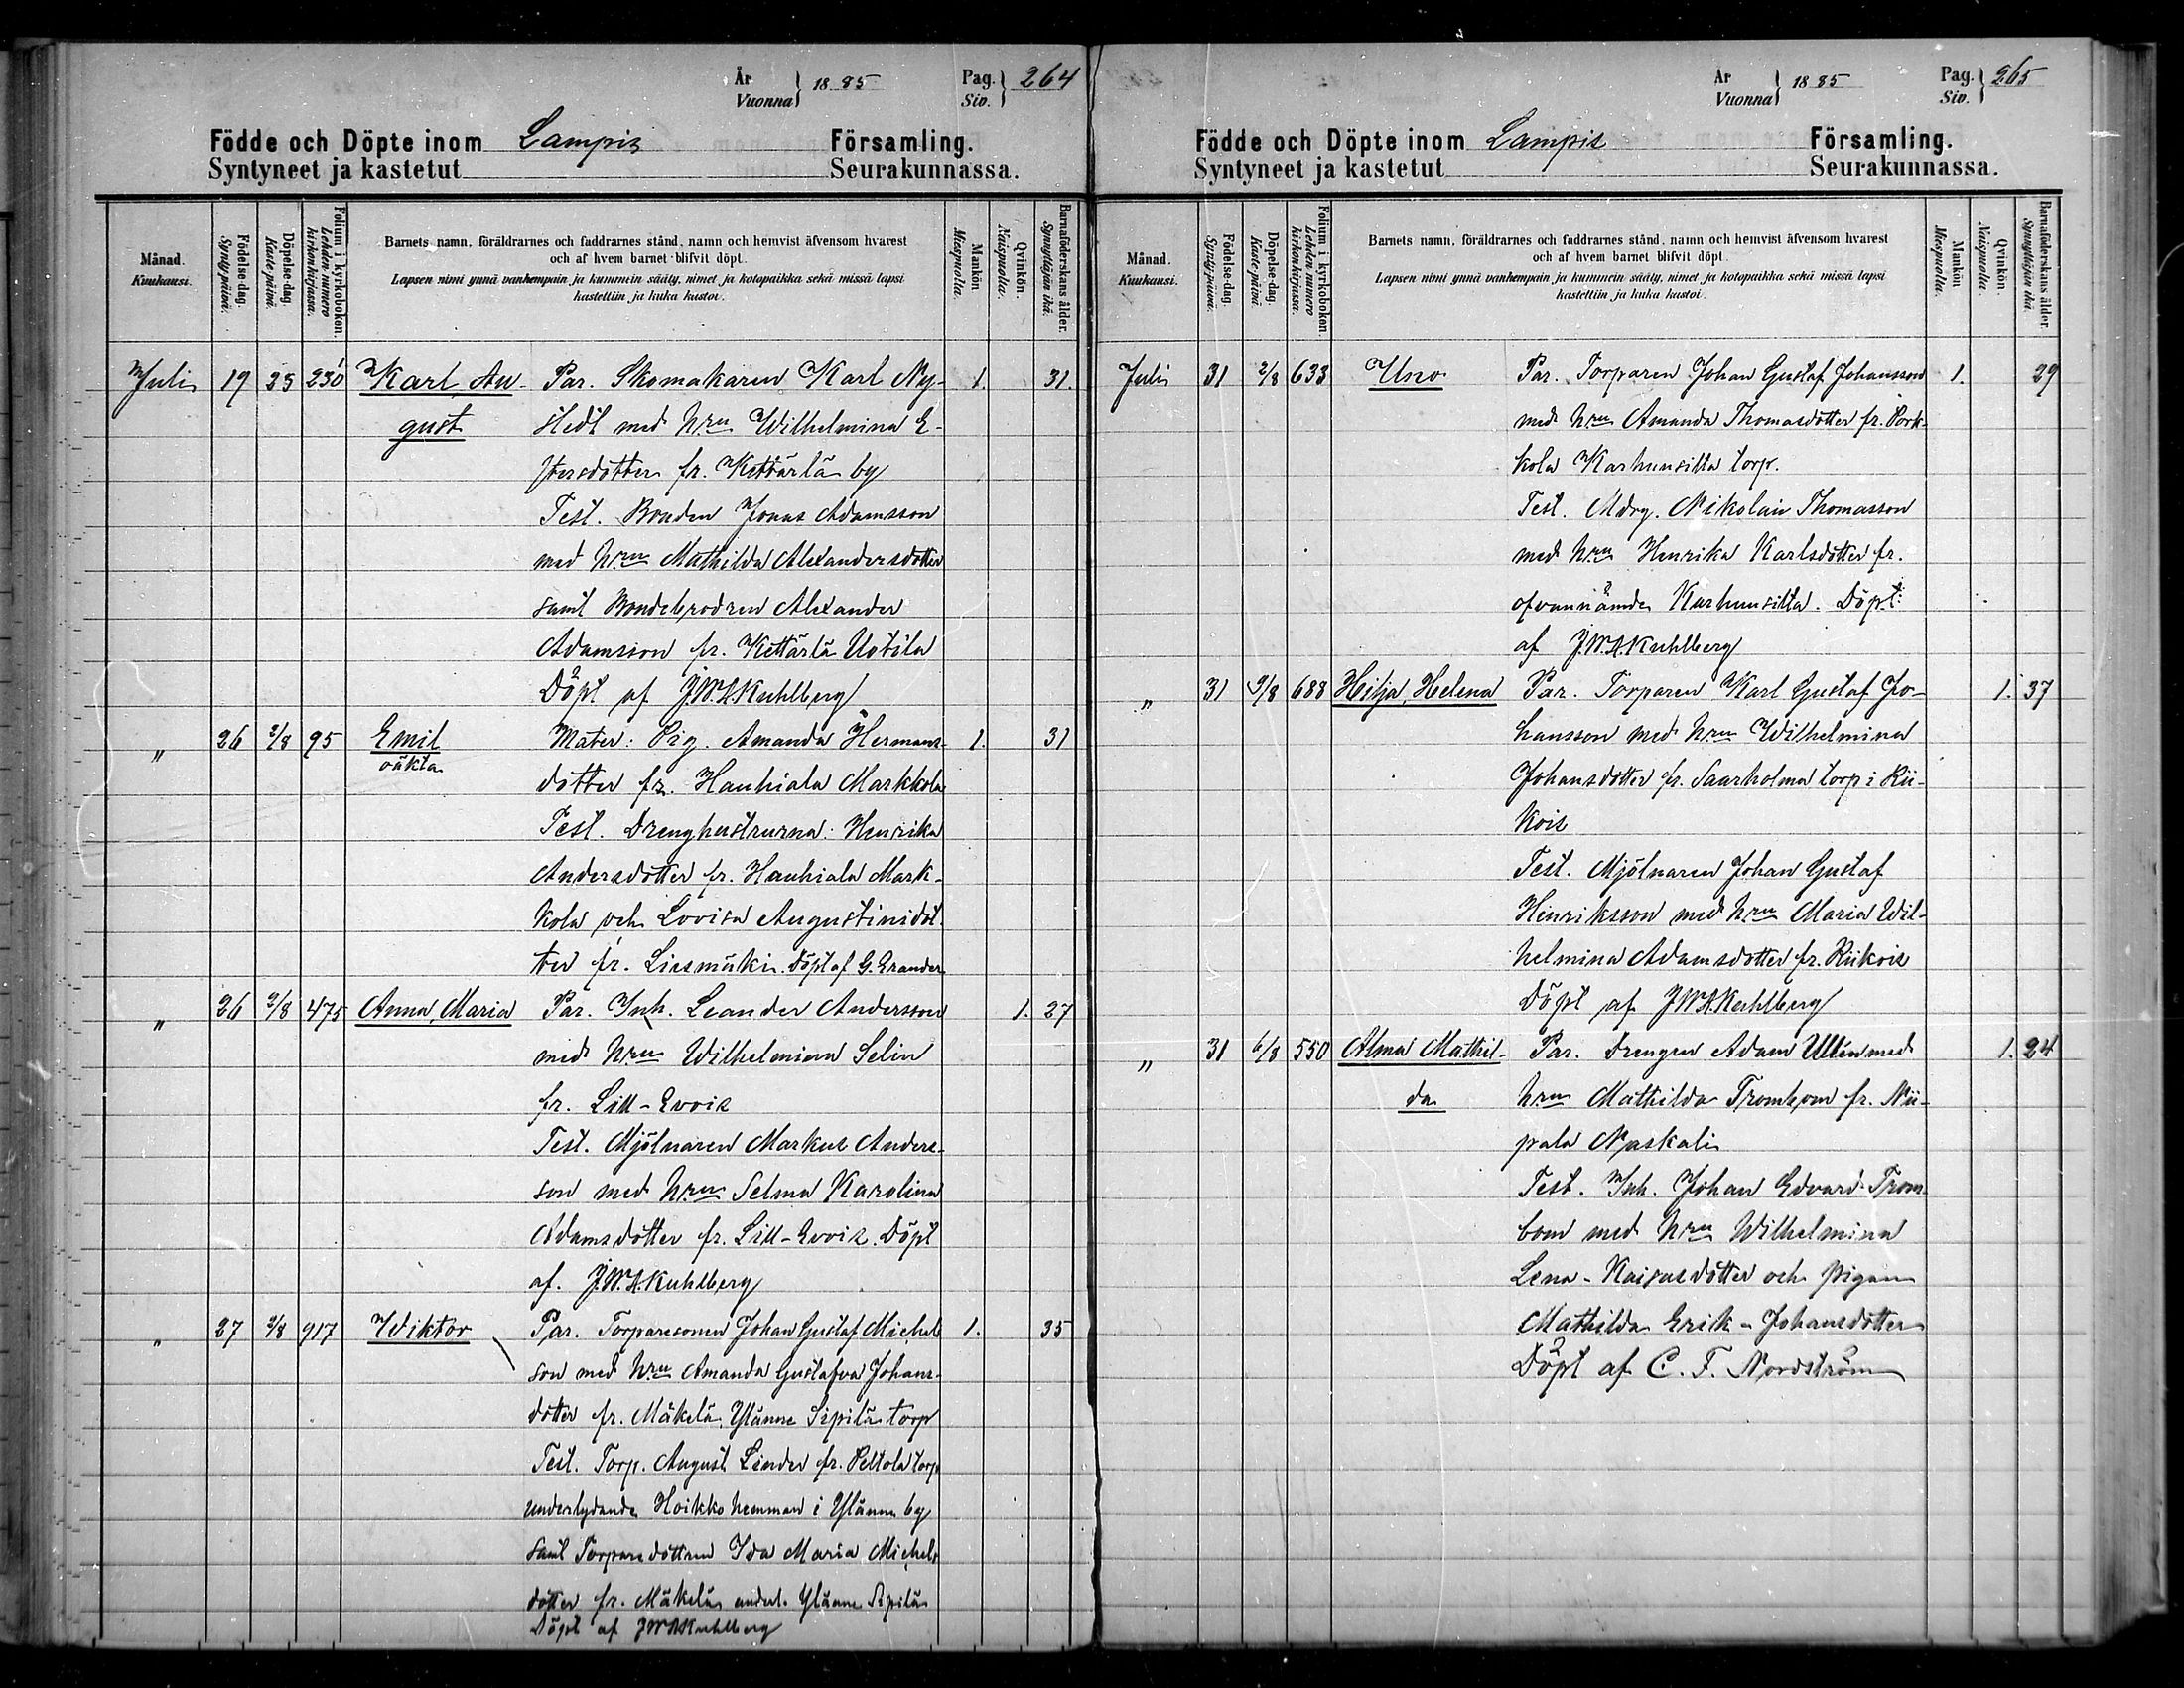 År
Vuonna
1885
Pag.
Siv.
264
Födde och Döpte inom Lampis Församling.
Syntyneet ja kastetut Seurakunnassa.
Månad.
Kuukausi.
Födelse-dag.
Synty-päivä.
Döpelse-dag.
Kaste-päivä.
Folium i kyrkoboken.
Lehden numero
kirkonkirjassa.
Barnets namn, föräldrarnes och faddrarnes stånd, namn och hemvist äfvensom hvarest
och af hvem barnet blifvit döpt.
Lapsen nimi ynnä vanhempain ja kummein sääty, nimet ja kotopaikka sekä missä lapsi
kastettiin ja kuka kastoi.
Mankön
Miespuolia.
Qvinkön.
Naispuolia.
Barnaföderskans ålder.
Synnyttäjän ikä.
Juli 19 25 230 Karl, Au- Par. Skomakaren Karl Ny- 1. 31.
gust stedt med hrun Wilhelmina E-
stersdotter fr. Kettärlä by
Test. Bonden Jonas Adamsson
med hrun Mathilda Alexandersdotter
samt Bondebrodren Alexander
Adamsson fr. Kettärlä Uotila
Döpt af J.W.A.Kuhlberg
" 26 2/8 95 Emil Mater: Pig. Amanda Hermans- 1. 31
oäkta dotter fr. Hauhiala Markkola
Test. Drenghustrurna: Henrika
Andersdotter fr. Hauhiala Mark-
kola och Lovisa Augustinidot-
ter fr. Liesmäki. Döpt af G. Erander
" 26 2/8 475 Anna, Maria Par. Inh. Leander Andersson 1. 27
med hrun Wilhelmina Selin
fr. Lill-Evois
Test. Mjölnaren Markus Anders-
son med hrun Selma Karolina
Adamsdotter fr. Lill-Evois. Döpt
af. J.W.A.Kuhlberg
" 27 2/8 917 Wiktor Par. Torparesonen Johan Gustaf Michels 1. 35
son med hrun Amanda Gustafva Johans-
dotter fr. Mäkelä, Ylänne Sipilä torp
Test. Torp. August Linder fr. Peltola torp
underlydande Hoikko hemman i Ylänne by
samt Torparedottren Ida Maria Michels
dotter fr. Mäkelä underl. Ylänne Sipilä
Döpt af J W A Kuhlberg
År
Vuonna
1885
Pag.
Siv.
265
Födde och Döpte inom Lampis Församling.
Syntyneet ja kastetut Seurakunnassa.
Månad.
Kuukausi.
Födelse-dag.
Synty-päivä.
Döpelse-dag.
Kaste-päivä.
Folium i kyrkoboken.
Lehden numero
kirkonkirjassa.
Barnets namn, föräldrarnes och faddrarnes stånd, namn och hemvist äfvensom hvarest
och af hvem barnet blifvit döpt.
Lapsen nimi ynnä vanhempain ja kummein sääty, nimet ja kotopaikka sekä missä lapsi
kastettiin ja kuka kastoi.
Mankön
Miespuolia.
Qvinkön.
Naispuolia.
Barnaföderskans ålder.
Synnyttäjän ikä.
Juli 31 2/8 633 Uno Par. Torparen Johan Gustaf Johansson 1. 29
med hrun Amanda Thomasdotter fr. Pork-
kola Karhunsilta torp.
Test. Mdrg. Nikolain Thomasson
med hrun Henrika Karlsdotter fr.
ofvannämde Karhunsilta. Döpt:
af J.W.A.Kuhlberg
" 31 9/8 688 Hilja, Helena Par. Torparen Karl Gustaf Jo- 1. 37
hansson med hrun Wilhelmina
Johansdotter fr. Saarholma torp i Rii-
kois
Test. Mjölnaren Johan Gustaf
Hinriksson med hrun Maria Wil-
helmina Adamsdotter fr. Riikois
Döpt af J W A.Kuhlberg
" 31 6/8 550 Alma Mathil- Par. Drengen Adam Ullén med 1. 24
da hrun Mathilda Trombom fr. Nii-
pala Naskali
Test. Inh. Johan Edvard Trom-
bom med hrun Wilhelmina
Lena-Kaisasdotter och pigan
Mathilda Erik-Johansdotter
Döpt af C. F. Nordström